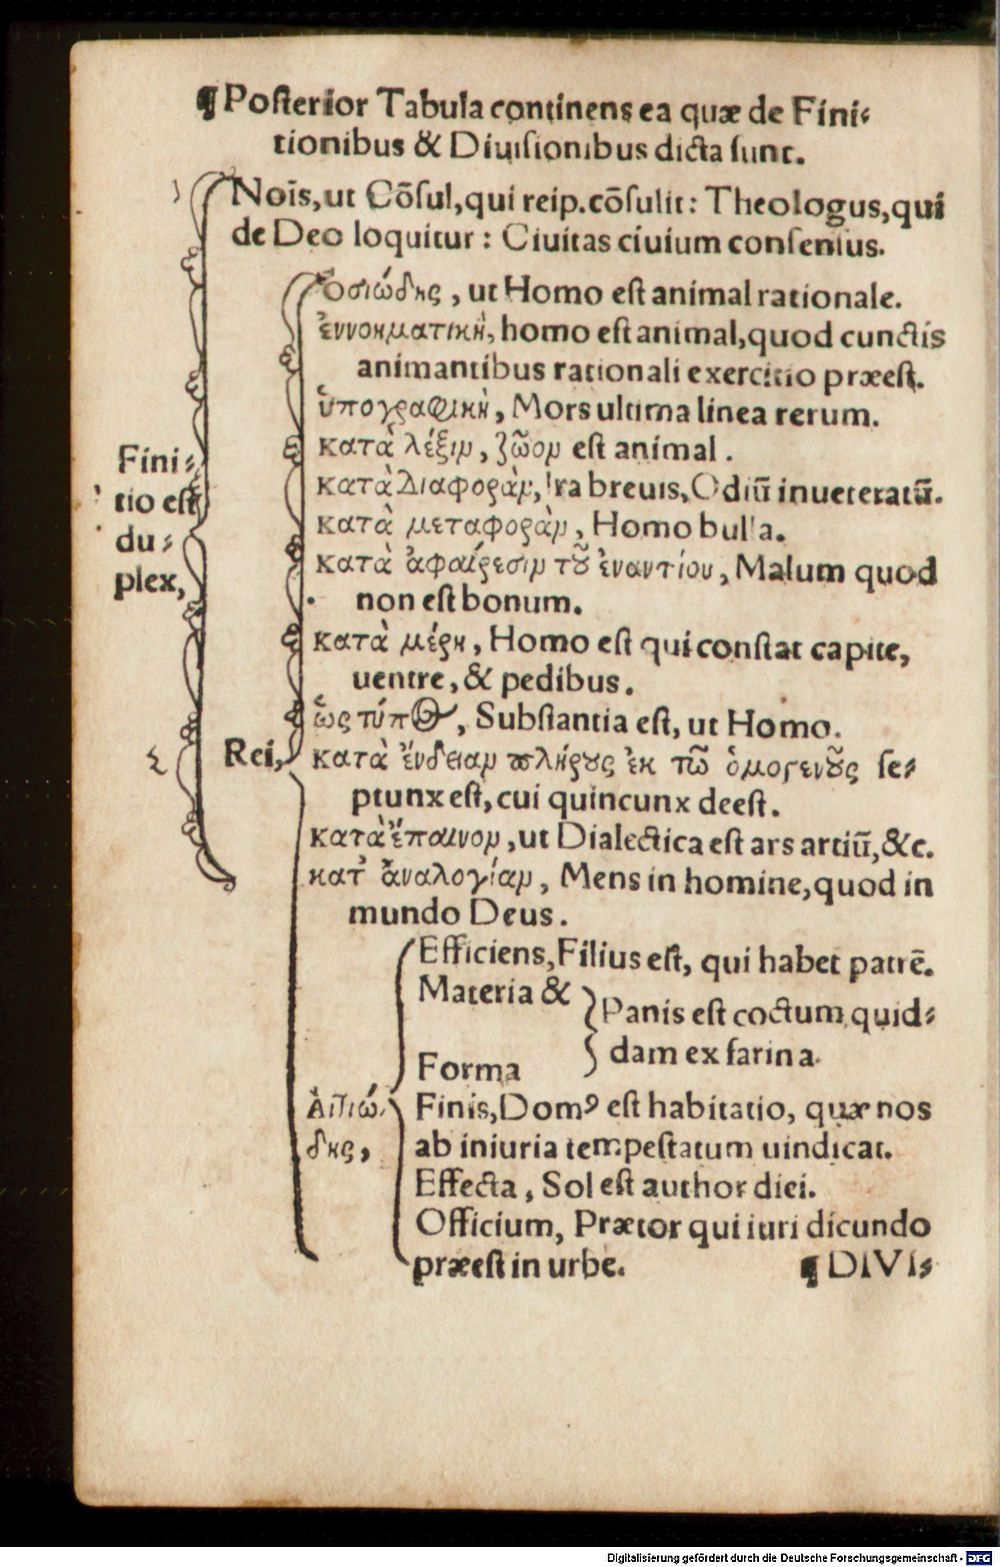 ¶ Posterior Tabula continens ea quæ de Fini⸗
tionibus & Diuisionibus dicta sunt.
Noīs, ut Cōsul, qui reip. cōsulit: Theologus, qui
de Deo loquitur: Ciuitas ciuium consensus.
Fini⸗
tio est
du⸗
plex,
ὀσιώδης, ut Homo est animal rationale.
ἐννοηματικὴ, homo est animal, quod cunctis
animantibus rationali exercitio præest.
ὑπογραφικὴ, Mors ultima linea rerum.
κατὰ λέξιν, ζῶον est animal.
κατὰ διαφορὰν, Ira breuis, Odiū inueteratū.
κατὰ μεταφορὰν, Homo bulla.
κατὰ ἀφαίρεσιν τοῦ ἐναντίου, Malum quod
non est bonum.
κατὰ μέρη, Homo est qui constat capite,
uentre, & pedibus.
ὡς τύπος, Substantia est, ut Homo.
Rei,
κατὰ ἔνδειαν πλήρους ἐκ τῶ ὁμογενοῦς se⸗
ptunx est, cui quincunx deest.
κατὰ ἔπαινον, ut Dialectica est ars artiū, &c.
κατ᾽ ἀναλογίαν, Mens in homine, quod in
mundo Deus.
Efficiens, Filius est, qui habet patrē.
Materia &
Panis est coctum quid⸗
dam ex farina.
Forma
Ἀιτιώ⸗
δης,
Finis, Domꝰ est habitatio, quæ nos
ab iniuria tempestatum uindicat.
Effecta, Sol est author diei.
Officium, Prætor qui iuri dicundo
præest in urbe.
¶ DIVI⸗
Digitalisierung gefördert durch die Deutsche Forschungsgemeinschaft - DFG